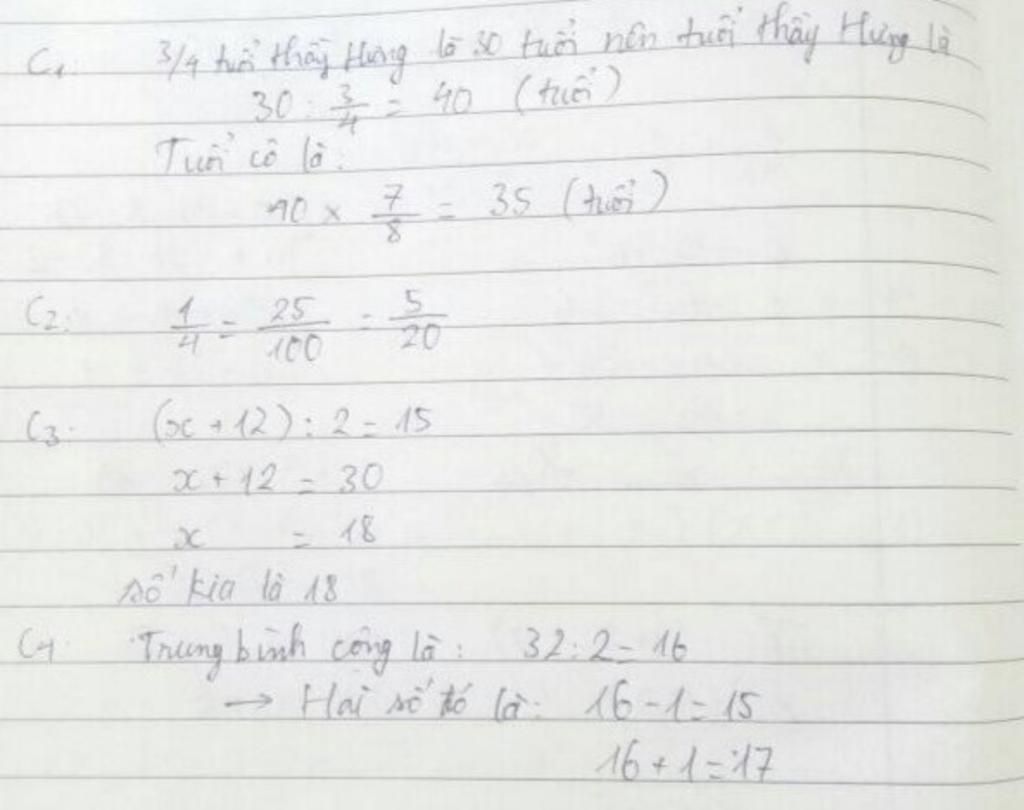 C1. 3/4 tuổi thầy Hưng là 30 tuổi nên tuổi thầy Hưng là
30 : 3/4 = 40 (tuổi)
Tuổi cô là:
40 × 7/8 = 35 (tuổi)
C2: 1/4 = 25/100 = 5/20
C3. (x + 12) : 2 = 15
x + 12 = 30
x = 18
số kia là 18
C4. Trung bình cộng là : 32 : 2 = 16
→ Hai số đó là: 16 - 1 = 15
16 + 1 = 17